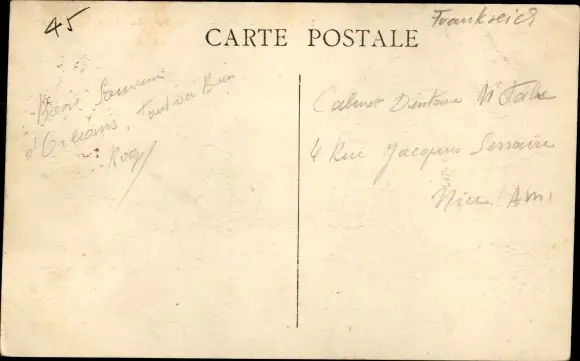 45
Frankreich
CARTE POSTALE
Bons Souvenirs
d'Orléans. Tout va Bien
Cabinet Dentaire Mr
4 Rue Jacques
Nice A M.